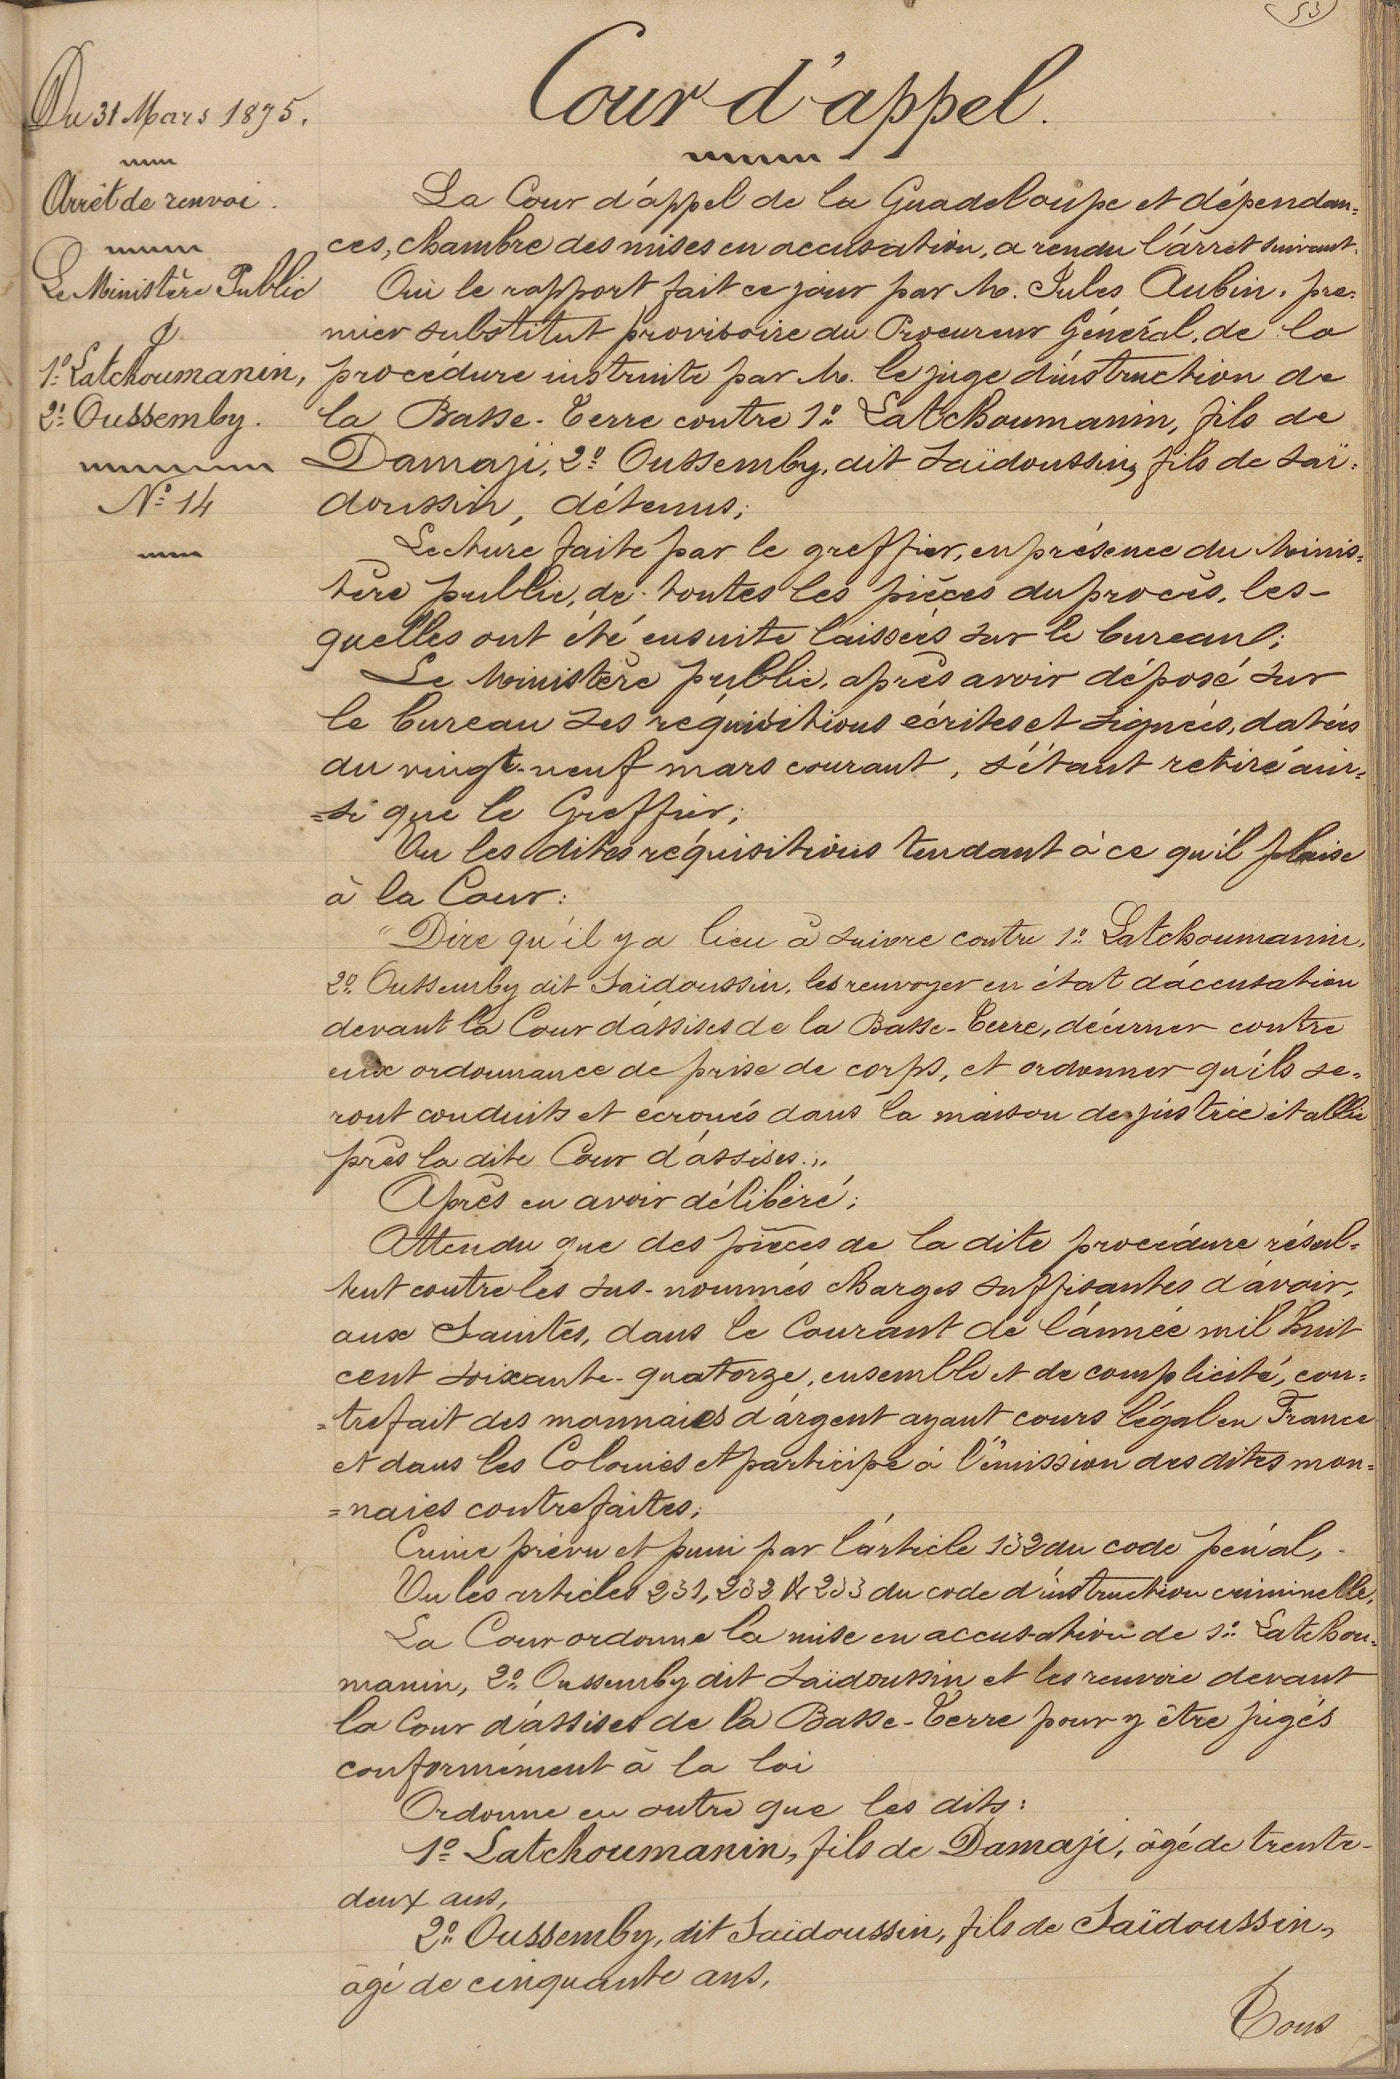 53
Cour d'appel.
Du 31 Mars 1875.
Arrêt de renvoi.
Le Ministère Public
C
1º Latchoumanin,
2º Oussemby.
Nº 14
La Cour d'appel de la Guadeloupe et dépendan=
ces, chambre des mises en accusation, a rendu l'arrêt suivant.
Oui le rapport fait ce jour par M. Jules Aubin, pre=
mier substitut provisoire du Procureur Général, de la
procédure instruite par M. le juge d'instruction de
la Basse-Terre contre 1º Latchoumanin, fils de
Damaji, 2º Oussemby, dit Saïdoussin, fils de Saï=
doussin, détenus;
Lecture faite par le greffier, en présence du Minis=
tère public, de toutes les pièces du procès, les-
quelles ont été ensuite laissées sur le bureau;
Le Ministère public, après avoir déposé sur
le bureau ses réquisitions écrites et signées, datées
du vingt-neuf mars courant, s'étant retiré ain=
=si que le Greffier;
Vu les dites réquisitions tendant à ce qu'il plaise
à la Cour:
"Dire qu'il y a lieu à suivre contre 1º Latchoumanin,
2º Oussemby dit Saïdoussin, les renvoyer en état d'accusation
devant la Cour d'assises de la Basse-Terre, décerner contre
eux ordonnance de prise de corps, et ordonner qu'ils se=
ront conduits et écroués dans la maison de justice établie
près la dite Cour d'assises.,,
Après en avoir délibéré;
Attendu que des pièces de la dite procédure résul=
tent contre les sus-nommés charges suffisantes d'avoir,
aux Saintes, dans le Courant de l'année mil huit
cent soixante-quatorze, ensemble et de complicité, con=
=trefait des monnaies d'argent ayant cours légal en France
et dans les Colonies et participé à l'émission des dites mon=
=naies contrefaites;
Crime prévu et puni par l'article 132 du code pénal,
Vu les articles 231, 232 & 233 du code d'instruction criminelle,
La Cour ordonne la mise en accusation de 1º Latchou=
manin, 2º Oussemby dit Saïdoussin et les renvoie devant
la Cour d'assises de la Basse-Terre pour y être jugés
conformément à la loi
Ordonne en outre que les dits:
1º Latchoumanin, fils de Damaji, âgé de trente-
deux ans,
2º Oussemby, dit Saïdoussin, fils de Saïdoussin,
âgé de cinquante ans,
Tous